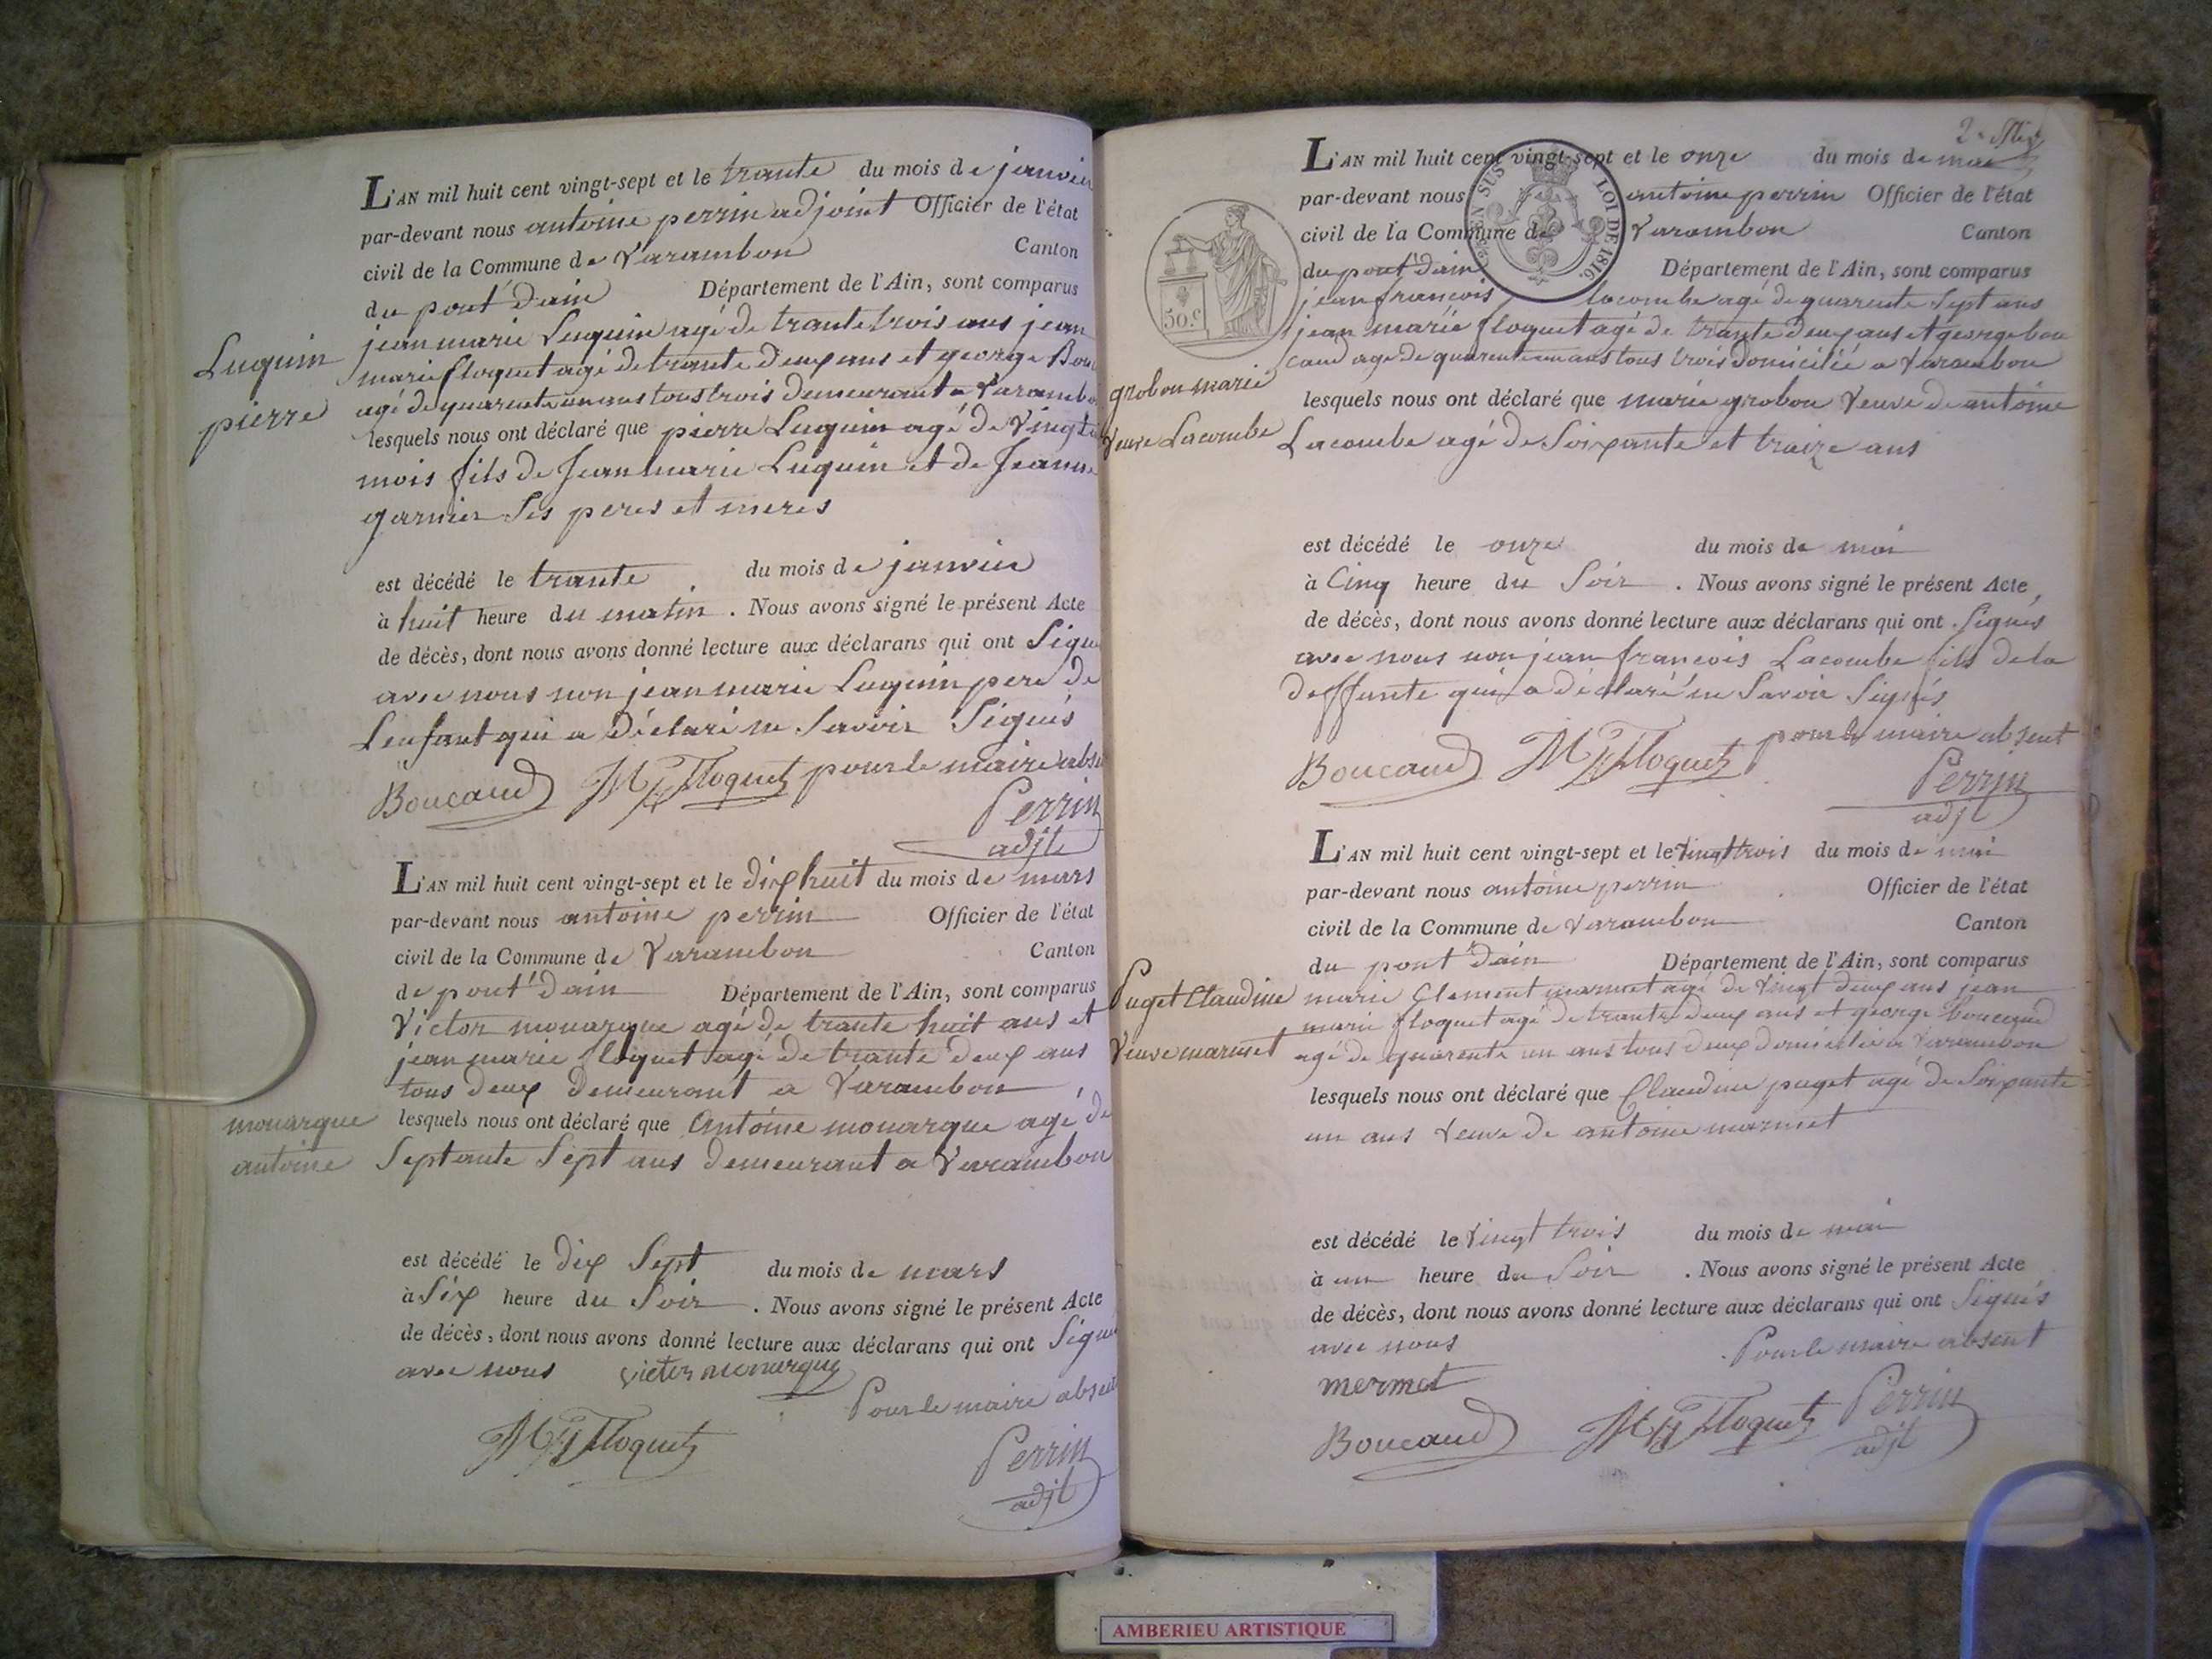 L'AN mil huit cent vingt-sept et le trante du mois de janvier
par-devant nous antoine perrin adjoint Officier de l'état
civil de la Commune de Varambon Canton
du pont d'ain Département de l'Ain, sont comparus
jean marie Luquin agé de trante trois ans jean
Luquin
pierre
marie floquet agé de trante deux ans et george Bou
agé de quarente un ans tous trois demeurant a Varambon
lesquels nous ont déclaré que pierre Luquin agé de Vingt
mois fils de Jean marie Luquin et de Jeanne
garnier Ses peres et meres
est décédé le trante du mois de janvier
à huit heure du matin . Nous avons signé le présent Acte
de décès, dont nous avons donné lecture aux déclarans qui ont Signé
avec nous non jean marie Luquin pere de
Lenfant qui a Déclaré ne Savoir Signés
Boucaud M Floquet pour le maire absent
Perrin
adjt
L'AN mil huit cent vingt-sept et le dix huit du mois de mars
par-devant nous antoine perrin Officier de l'état
civil de la Commune de Varambon Canton
de pont d'ain Département de l'Ain, sont comparus
Victor monarque agé de trante huit ans et
jean marie floquet agé de trante deux ans
tous deux demeurant a Varambon
monarque
antoine
lesquels nous ont déclaré que Antoine monarque agé de
Septante Sept ans demeurant a Varambon
est décédé le dix Sept du mois de mars
à Six heure du Soir . Nous avons signé le présent Acte
de décès, dont nous avons donné lecture aux déclarans qui ont Signé
avec nous victor monarque
Pour le maire absent
M Floquet
Perrin
adjt
L'AN mil huit cent vingt-sept et le onze du mois de mai
par-devant nous antoine perrin Officier de l'état
civil de la Commune de Varambon Canton
du pont d'ain Département de l'Ain, sont comparus
EN SUS LOI DE 1816.
50.c
jean francois lacombe agé de quarente Sept ans
jean marie floquet agé de trante deux ans et george bou
caud agé de quarente un ans tous trois domicilié a Varambon
grobon marie
Veuve Lacombe
lesquels nous ont déclaré que marie grobon Veuve de antoine
Lacombe agé de Soixante et traize ans
est décédé le onze du mois de mai
à Cinq heure du Soir . Nous avons signé le présent Acte
de décès, dont nous avons donné lecture aux déclarans qui ont Signés
avec nous non jean francois Lacombe fils de la
deffunte qui a déclaré ne Savoir Signés
pour le maire absent
Boucaud M Floquet Perrin
adjt
L'AN mil huit cent vingt-sept et le Vingt trois du mois de mai
par-devant nous antoine perrin Officier de l'état
civil de la Commune de Varambon Canton
du pont d'ain Département de l'Ain, sont comparus
Puget Claudine
Veuve marmet
marie Clement marmet agé de Vingt deux ans jean
marie floquet agé de trante deux ans et george boucaud
agé de quarente un ans tous deux domicilié a Varambon
lesquels nous ont déclaré que Claudine puget agé de Soixante
un ans Veuve de antoine marmet
est décédé le Vingt trois du mois de mai
à un heure du Soir . Nous avons signé le présent Acte
de décès, dont nous avons donné lecture aux déclarans qui ont Signés
avec nous Pour le maire absent
mermet
Boucaud M Floquet Perrin
adjt
AMBERIEU ARTISTIQUE